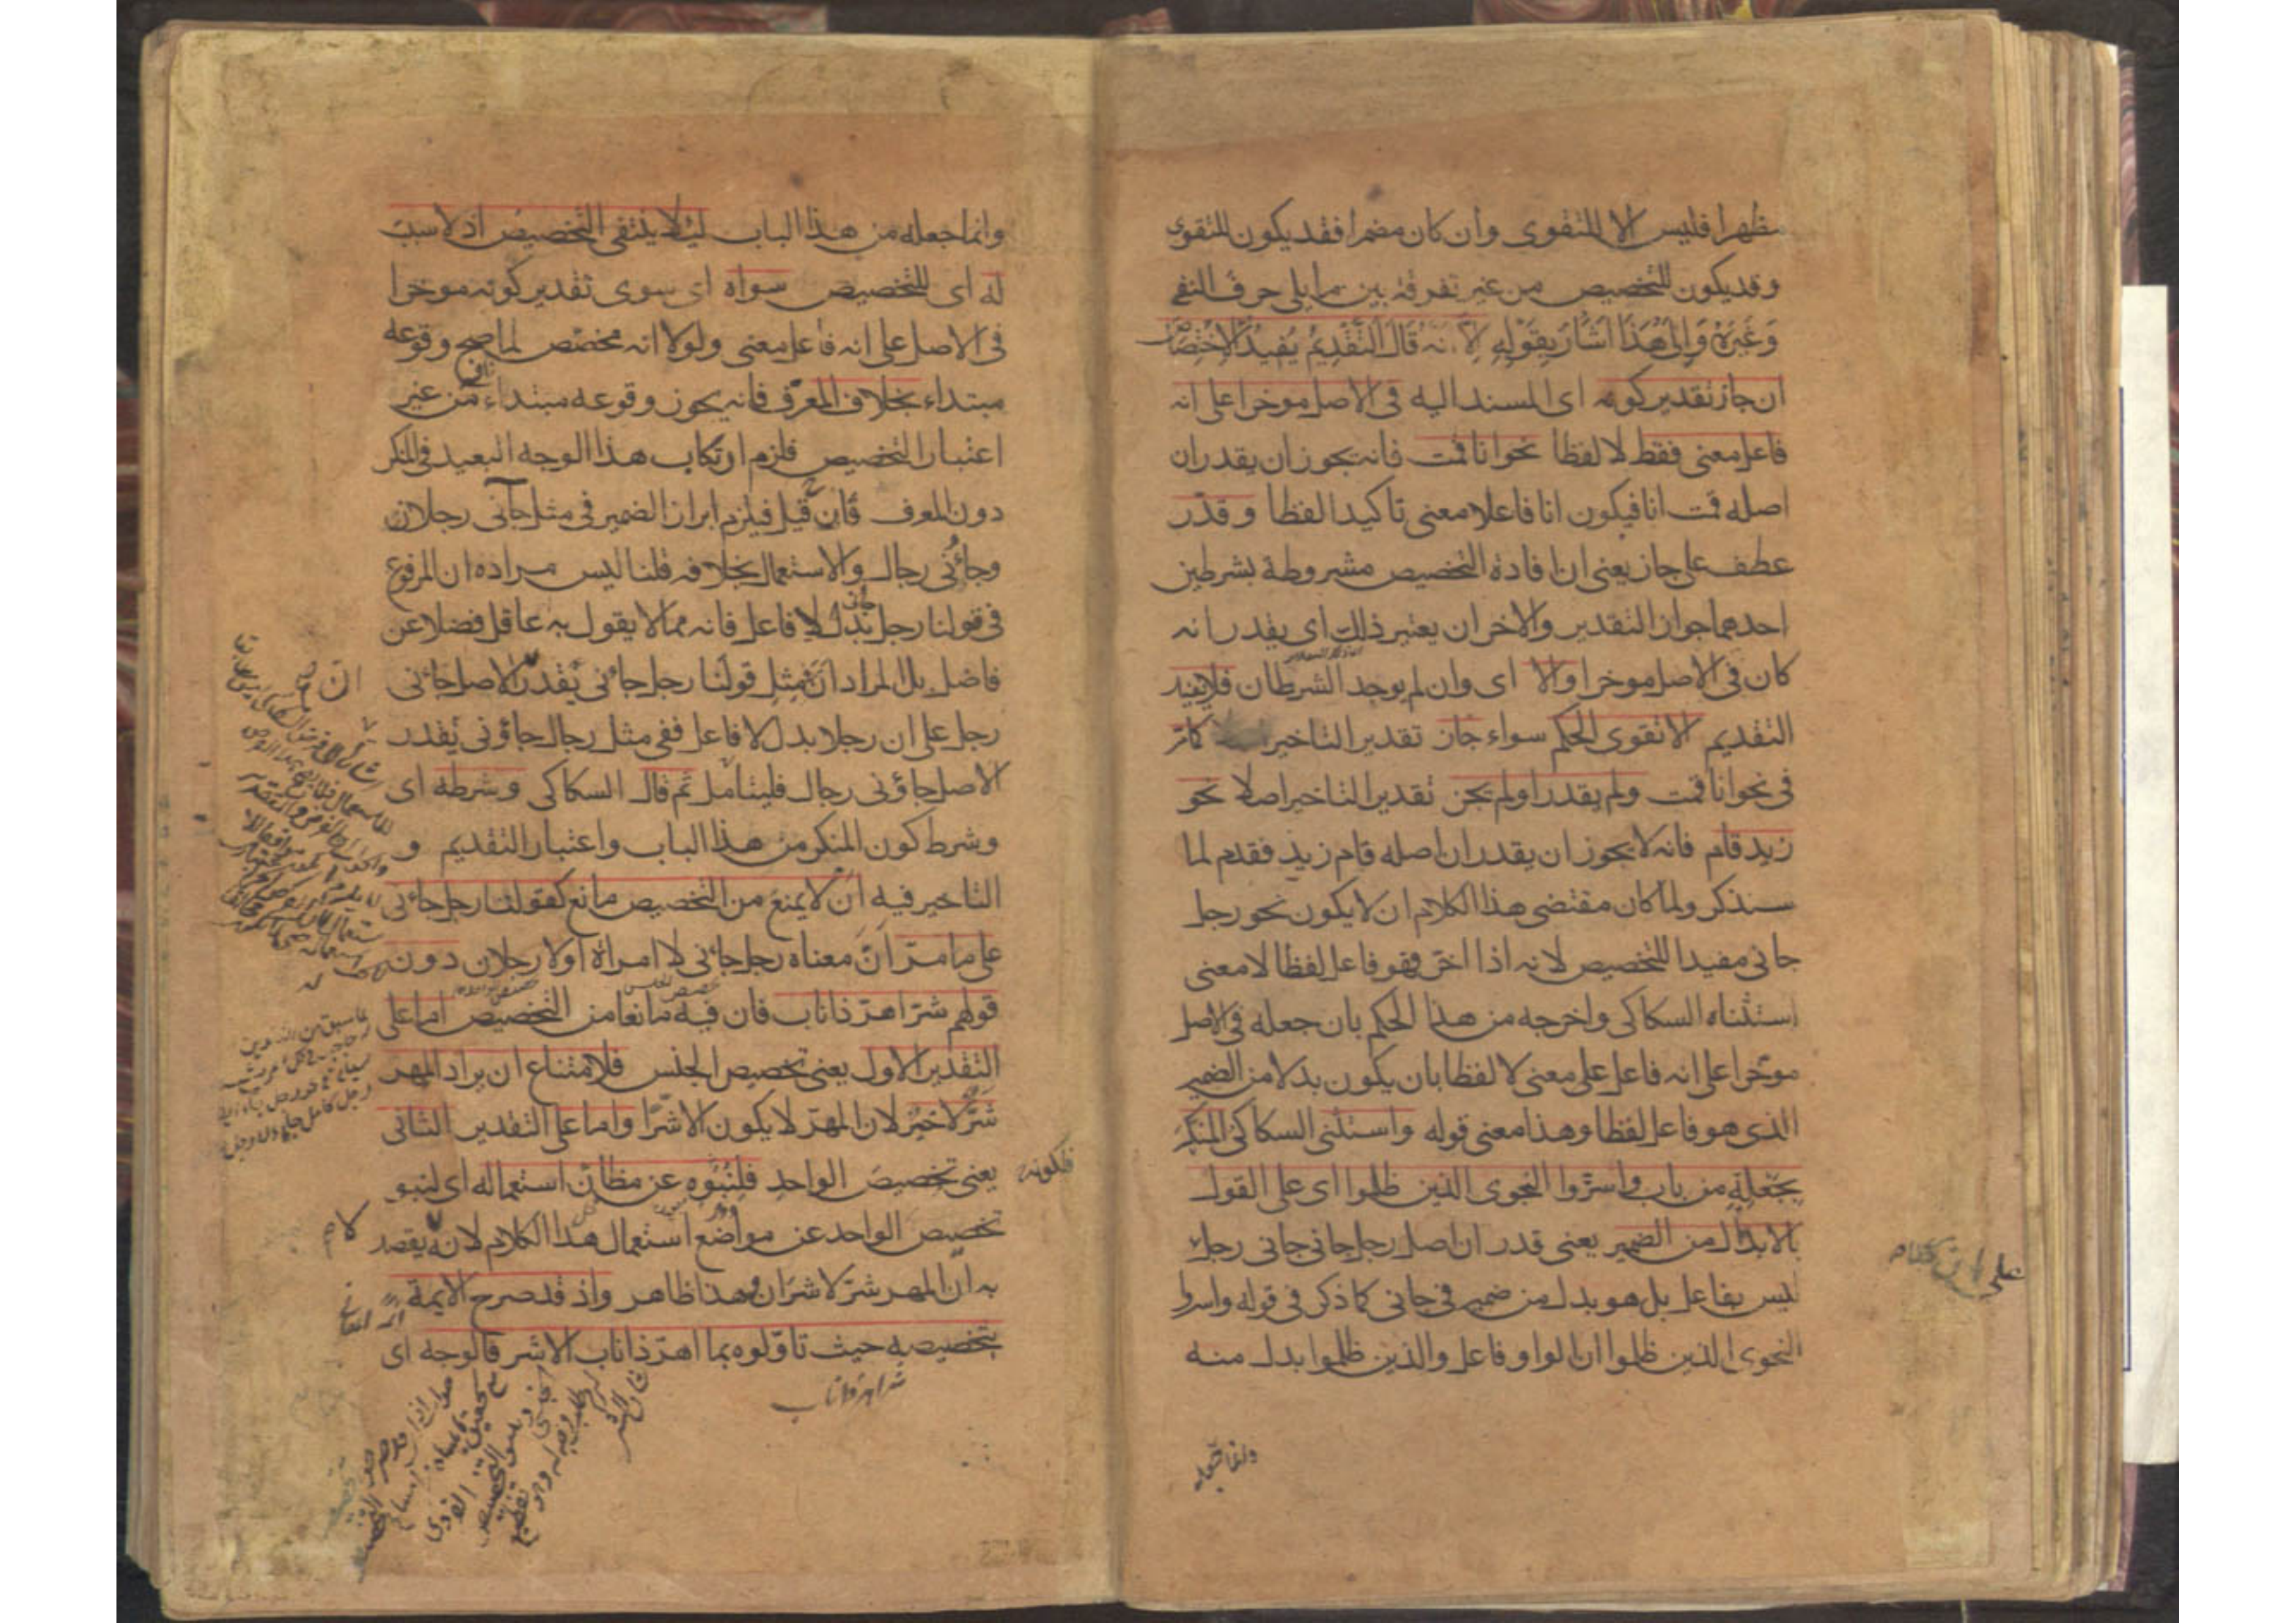 مظهرا فليس الا للتقوى وان كان مضمرا فقد يكون للتقوى
وقد يكون للتخصيص من غير تفرقة بين ما يلى حرف النفى
وَغَيرَهُ وَاِلىٰ هٰذَا اَشَارَ بِقَوْلِهِ لِاَنَّهُ قَالَ التَّقْدِيمُ يُفِيدُ الْاِخْتِصَاصَ
ان جاز تقدير كونه اى المسند اليه فى الاصل موخرا على انه
فاعل معنى فقط لا لفظا نحو انا قمت فانه يجوز ان يقدر ان
اصله قمت انا فيكون انا فاعلا معنى تاكيدا لفظا وقدّر
عطف على جاز يعنى ان افادة التخصيص مشروطة بشرطين
احدهما جواز التقدير والاخر ان يعتبر ذلك اى يقدر انه
كان فى الاصل موخرا والا اى وان لم يوجد الشرطان فلا يفيد
التقديم الا تقوى الحكم سواء جاز تقدير التاخير كما مر
فى نحو انا قمت ولم يقدر اولم يجن تقدير التاخير اصلا نحو
زيد قام فانه لا يجوز ان يقدر ان اصله قام زيد فقدم لما
سنذكر ولما كان مقتضى هذا الكلام ان لا يكون نحو رجل
جانى مفيدا للتخصيص لانه اذا اخر فهو فاعل لفظا لا معنى
استثناه السكاكى واخرجه من هذا الحكم بان جعله فى الاصل
موخرا على انه فاعل على معنى لا لفظا بان يكون بدلا من الضمير
الذى هو فاعل لفظا وهذا معنى قوله واستثنى السكاكى المنكر
بجعله من باب واسرّوا النجوى الذين ظلموا اى على القول
بالابدال من الضمير يعنى قدر ان اصل رجل جانى جانى رجل
ليس بفاعل بل هو بدل من ضمير فى جانى كما ذكر فى قوله واسروا
النجوى الذين ظلموا ان الواو فاعل والذين ظلموا بدل منه
وانما جعله
وانما جعله من هذا الباب ليلا ينتفى التخصيص اذ لا سبب
له اى للتخصيص سواه اى سوى تقدير كونه موخرا
فى الاصل على انه فاعل معنى ولولا انه مخصّص لما صح وقوعه
مبتداء بخلاف المعرّف فانه يجوز وقوعه مبتداء من غير
اعتبار التخصيص فلزم ارتكاب هذا الوجه البعيد فى المنكر
دون المعرف فان قيل فيلزم ابراز الضمير فى مثل جآنى رجلان
وجاؤنى رجال والاستعمال بخلافه قلنا ليس مراده ان المرفوع
فى قولنا رجل بدل لا فاعل فانه مما لا يقول به عاقل فضلا عن
فاضل بل المراد ان فى مثل قولنا رجل جائنى يقدر الاصل جائنى
رجل على ان رجلا بدل لا فاعل ففى مثل رجال جاؤنى يقدر
الاصل جاؤنى رجال فليتامل ثم قال السكاكى وشرطه اى
وشرط كون المنكر من هذا الباب واعتبار التقديم و
التاخير فيه ان لا يمنع من التخصيص مانع كقولنا رجل جائنى
على ما مرّ انّ معناه رجل جائنى لا امراة او لا رجلان دون
قولهم شرّ اهرّ ذا ناب فان فيه مانعا من التخصيص اما على
التقدير الاول يعنى تخصيص الجنس فلامتناع ان يراد المهر
شرّ لا خير لان المهرّ لا يكون الا شرّا واما على التقدير الثانى
يعنى تخصيص الواحد فلنبوّه عن مظانّ استعماله اى لنبو
تخصيص الواحد عن مواضع استعمال هذا الكلام لانه لا يقصد
به انّ المهر شرّ لا شرّان وهذا ظاهر واذ قد صرح الايمة
بتخصيصه حيث تاوّلوه بما اهرّ ذا ناب الا شر فالوجه اى
شر اهر ذا ناب